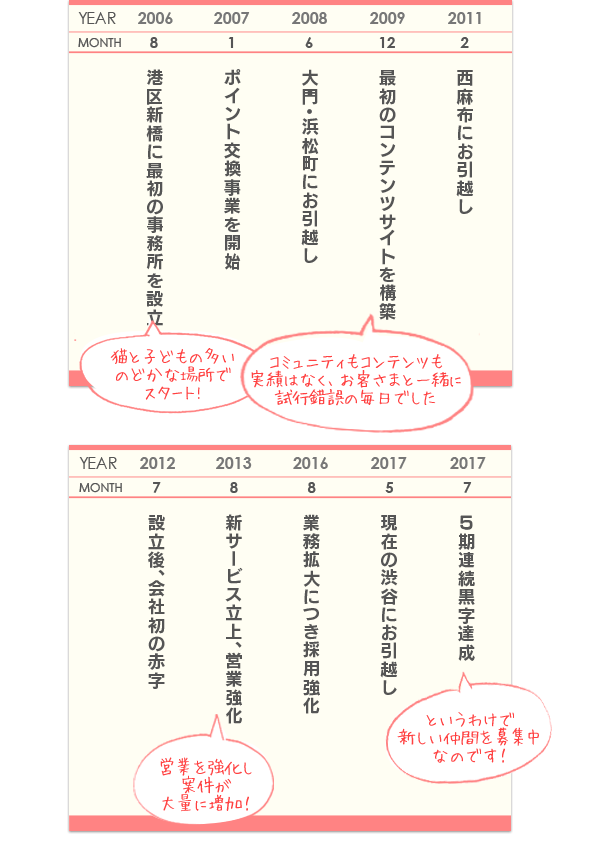 YEAR 2006 2007 2008 2009 2011
MONTH 8 1 6 12 2
港区新橋に最初の事務所を設立
ポイント交換事業を開始
大門・浜松町にお引越し
最初のコンテンツサイトを構築
西麻布にお引越し
猫と子どもの多い
のどかな場所で
スタート!
コミュニティもコンテンツも
実績はなく、お客さまと一緒に
試行錯誤の毎日でした
YEAR 2012 2013 2016 2017 2017
MONTH 7 8 8 5 7
設立後、会社初の赤字
新サービス立上、営業強化
業務拡大につき採用強化
現在の渋谷にお引越し
5期連続黒字達成
営業を強化し
案件が
大量に増加!
というわけで
新しい仲間を募集中
なのです!